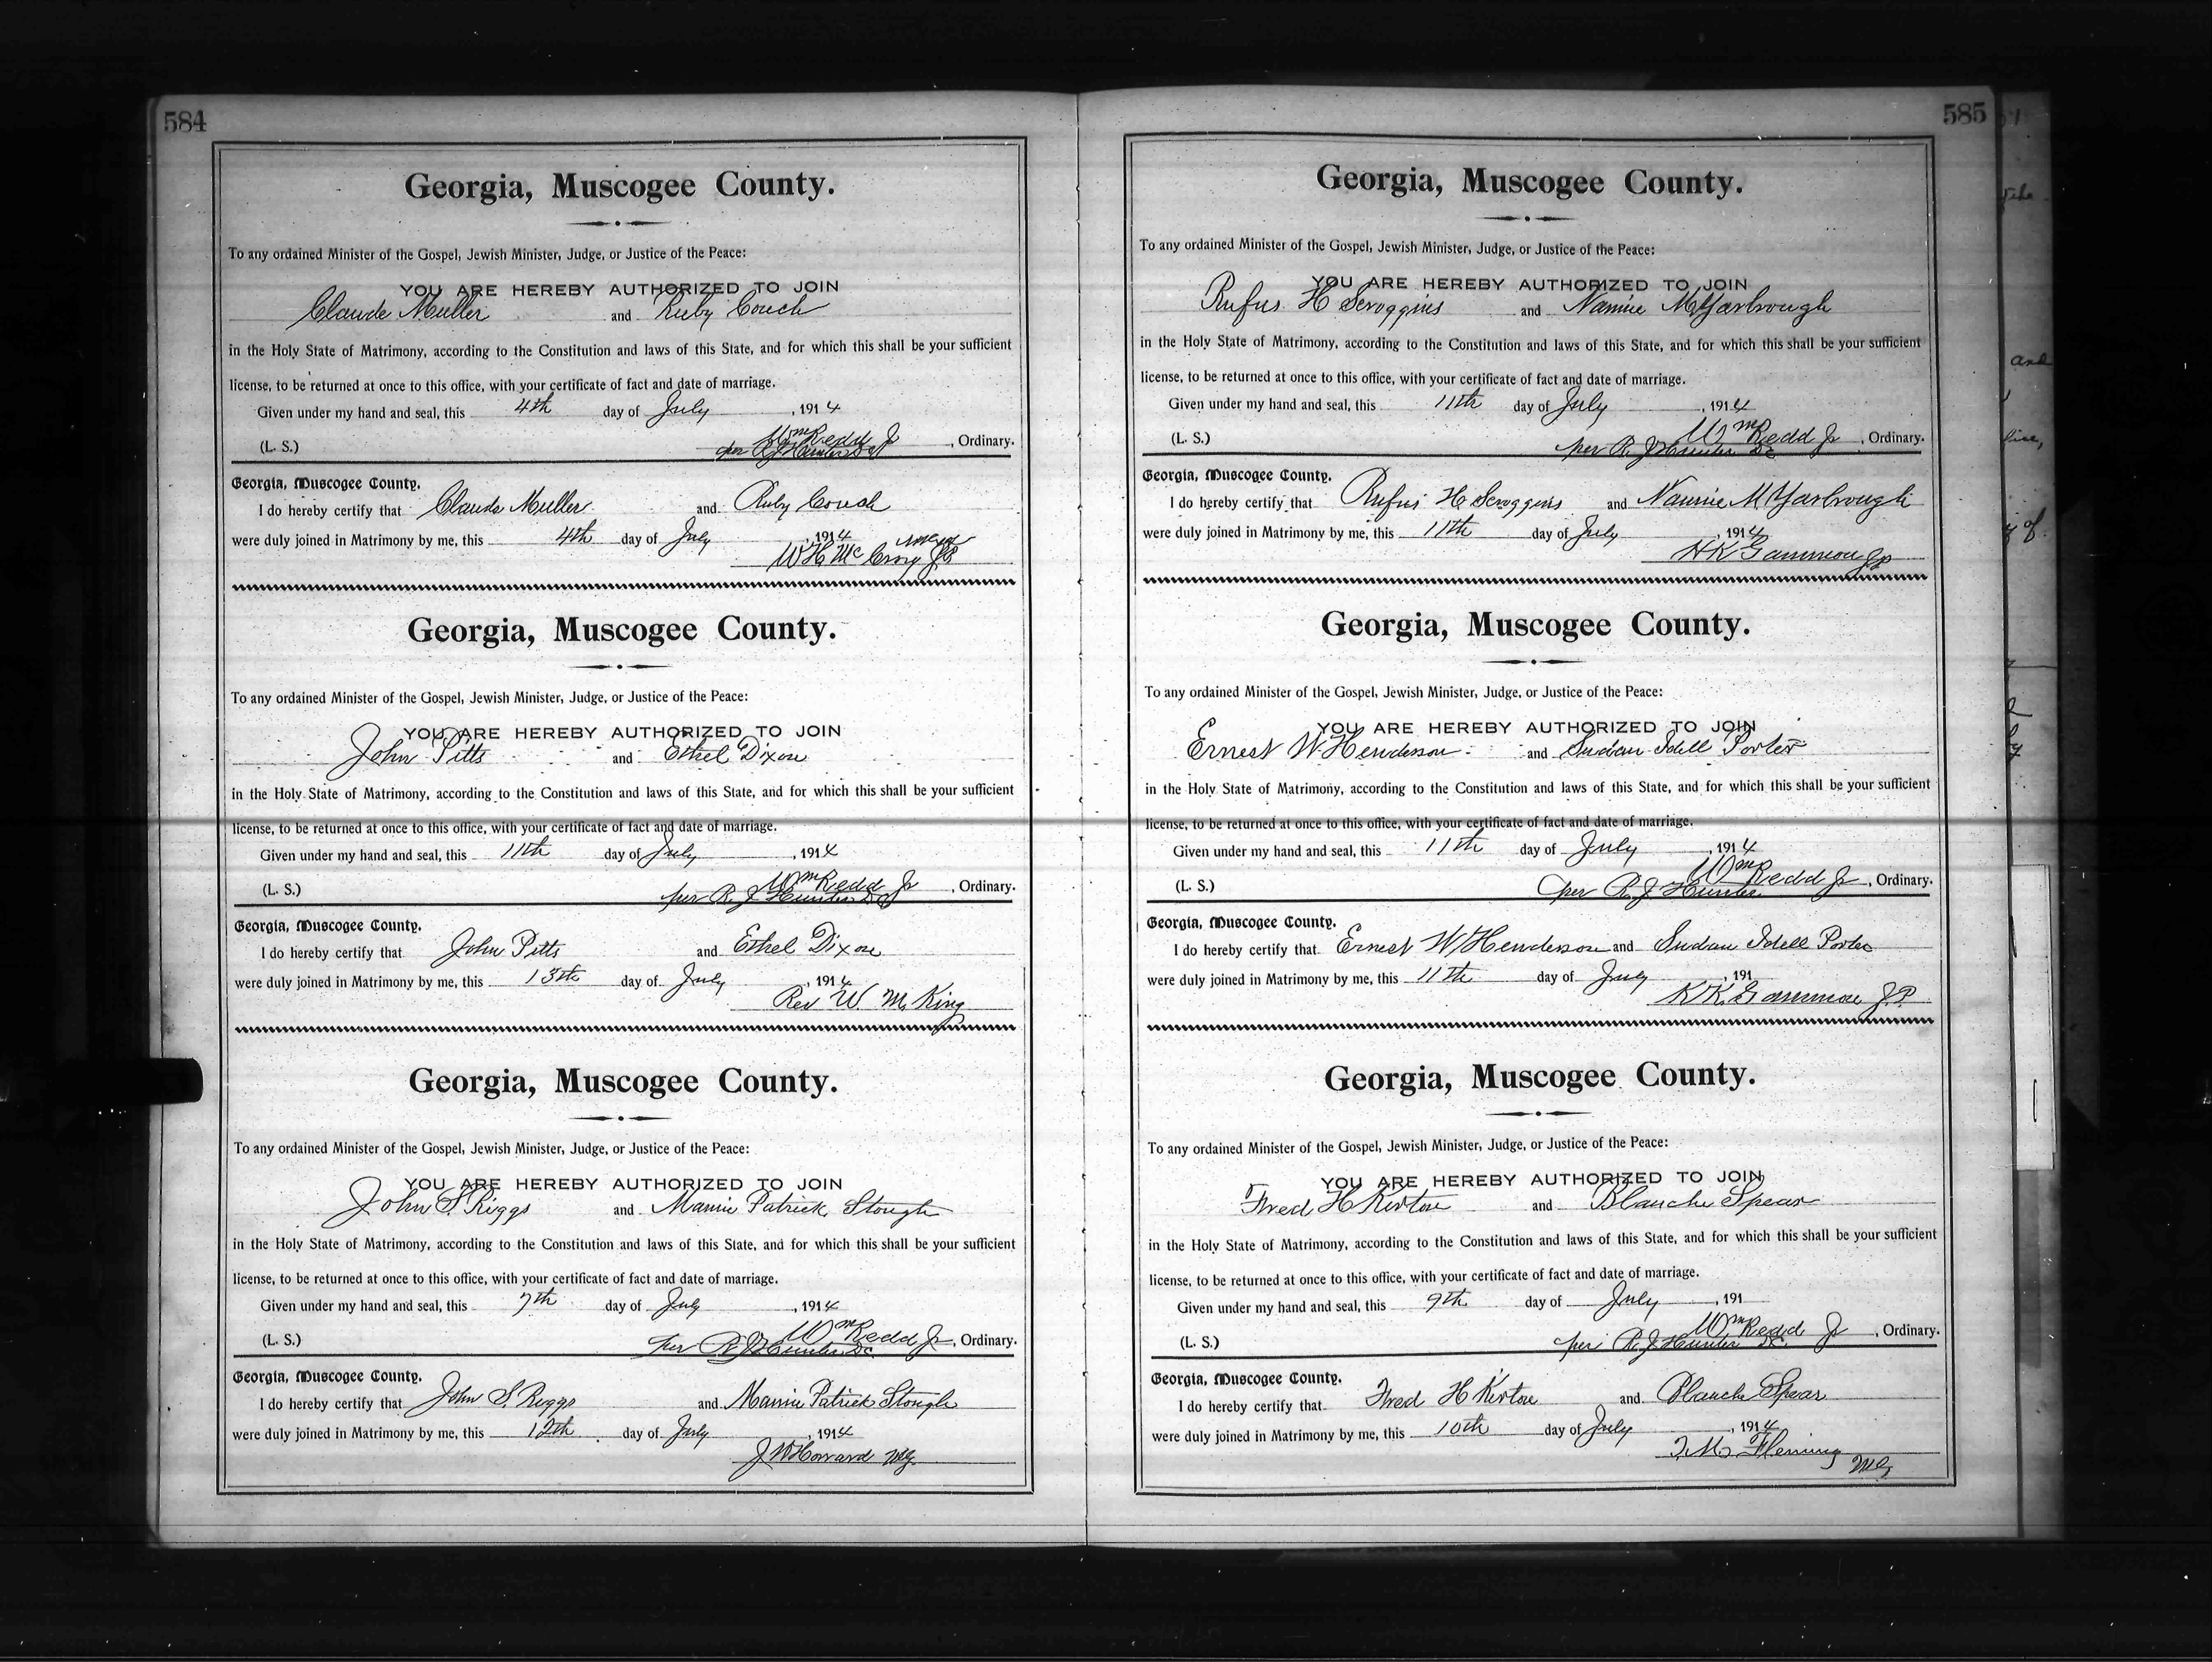 584
Georgia, Muscogee County.
To any ordained Minister of the Gospel, Jewish Minister, Judge, or Justice of the Peace:
YOU ARE HEREBY AUTHORIZED TO JOIN
Claude Muller and Ruby Couch
in the Holy State of Matrimony, according to the Constitution and laws of this State, and for which this shall be your sufficient
license, to be returned at once to this office, with your certificate of fact and date of marriage.
Given under my hand and seal, this 4th day of July, 1914
Wm Redd Jr
(L. S.) per R J Hunter, Ordinary.
Georgia, Muscogee County.
I do hereby certify that Claude Muller and Ruby Couch
were duly joined in Matrimony by me, this 4th day of July, 1914
W H McCrory
Georgia, Muscogee County.
To any ordained Minister of the Gospel, Jewish Minister, Judge, or Justice of the Peace:
YOU ARE HEREBY AUTHORIZED TO JOIN
John Pitts and Ethel Dixon
in the Holy State of Matrimony, according to the Constitution and laws of this State, and for which this shall be your sufficient
license, to be returned at once to this office, with your certificate of fact and date of marriage.
Given under my hand and seal, this 11th day of July, 1914
Wm Redd Jr
(L. S.) per R J Hunter, Ordinary.
Georgia, Muscogee County.
I do hereby certify that John Pitts and Ethel Dixon
were duly joined in Matrimony by me, this 13th day of July, 1914
Rev W. M. King
Georgia, Muscogee County.
To any ordained Minister of the Gospel, Jewish Minister, Judge, or Justice of the Peace:
YOU ARE HEREBY AUTHORIZED TO JOIN
John S. Riggs and Mamie Patrick Stough
in the Holy State of Matrimony, according to the Constitution and laws of this State, and for which this shall be your sufficient
license, to be returned at once to this office, with your certificate of fact and date of marriage.
Given under my hand and seal, this 7th day of July, 1914
Wm Redd Jr
(L. S.) per R J Hunter DC, Ordinary.
Georgia, Muscogee County.
I do hereby certify that John S. Riggs and Mamie Patrick Stough
were duly joined in Matrimony by me, this 12th day of July, 1914
J W Howard MG
585
Georgia, Muscogee County.
To any ordained Minister of the Gospel, Jewish Minister, Judge, or Justice of the Peace:
YOU ARE HEREBY AUTHORIZED TO JOIN
Rufus H Scroggins and Nannie M Yarbrough
in the Holy State of Matrimony, according to the Constitution and laws of this State, and for which this shall be your sufficient
license, to be returned at once to this office, with your certificate of fact and date of marriage.
Given under my hand and seal, this 11th day of July, 1914
Wm Redd Jr
(L. S.) per R J Hunter DC, Ordinary.
Georgia, Muscogee County.
I do hereby certify that Rufus H Scroggins and Nannie M Yarbrough
were duly joined in Matrimony by me, this 11th day of July, 1914
H K Gammon JP
Georgia, Muscogee County.
To any ordained Minister of the Gospel, Jewish Minister, Judge, or Justice of the Peace:
YOU ARE HEREBY AUTHORIZED TO JOIN
Ernest W Henderson and Idell Porter
in the Holy State of Matrimony, according to the Constitution and laws of this State, and for which this shall be your sufficient
license, to be returned at once to this office, with your certificate of fact and date of marriage.
Given under my hand and seal, this 11th day of July, 1914
Wm Redd Jr
(L. S.) per R. J Hunter, Ordinary.
Georgia, Muscogee County.
I do hereby certify that Ernest W Henderson and Idell Porter
were duly joined in Matrimony by me, this 11th day of July, 191
K K Gammon J.P.
Georgia, Muscogee County.
To any ordained Minister of the Gospel, Jewish Minister, Judge, or Justice of the Peace:
YOU ARE HEREBY AUTHORIZED TO JOIN
Fred H Kirton and Blanche Spear
in the Holy State of Matrimony, according to the Constitution and laws of this State, and for which this shall be your sufficient
license, to be returned at once to this office, with your certificate of fact and date of marriage.
Given under my hand and seal, this 9th day of July, 191
Wm Redd Jr
(L. S.) per R. J. Hunter DC, Ordinary.
Georgia, Muscogee County.
I do hereby certify that Fred H Kirton and Blanche Spear
were duly joined in Matrimony by me, this 10th day of July, 1914
T. M. Fleming
MG